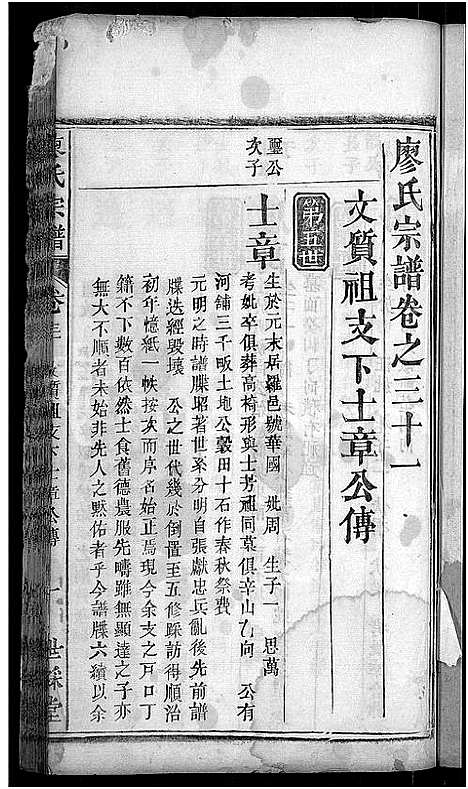 廖氏宗譜卷之三十一
文質祖支下士章公傳
第五世
璽公
次子
士章
生於元末居羅邑號華國 妣周 生子一 思萬
考妣卒俱葬高椅形與士芳祖同墓俱辛山乙向 公有
河鋪三千畈土地公穀田十石作春秋祭費
元明之時譜牒昭著世系分明自張獻忠兵亂後先前譜
牒迭經毀壞 公之世代幾於倒置至五修踩訪得順治
初年憶紙一帙按次而序名始正焉現今余支之戸口丁
籍不下數百依然士食舊德農服先疇雖無顯達之子亦
無大不順者未始非先人之黙佑者乎今譜牒六續以余
廖氏宗譜 卷三 文質祖支下士章公傳 一 世綵堂